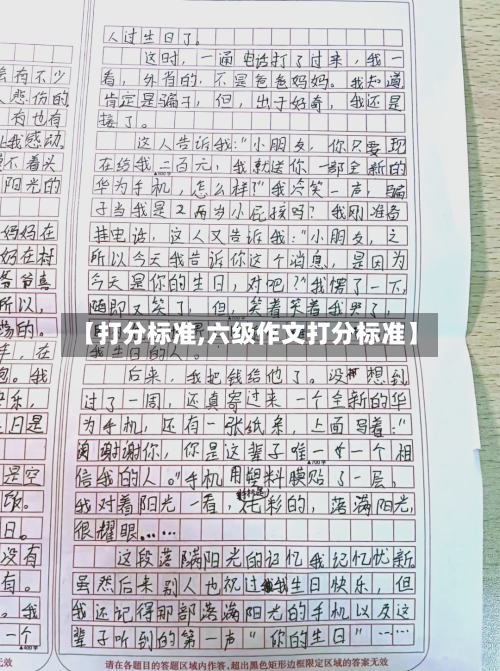 会有不少
人悲伤的
有也有
让我感动。
着头
阳光的
妈妈在
好在村
爷爷真
所以,
的。
手,在
。我
乐,
日是
是空
饭。
日。
没有
有。
。我
一个
无效
人过生日了。
这时,一通电话打了过来,我一
看,外省的,不是爸爸妈妈。我知道
肯定是骗子,但,出于好奇,我还是
接了。
这人告诉我:“小朋友,你只要现
在给我二百元,我就送你一部全新的
华为手机,怎么样?”我冷笑一声,骗
子当我是2而当小屁孩吗?我刚准备
挂电话,这人又告诉我:“小朋友,之
所以今天我告诉你这个消息,是因为
今天是你的生日,对吧?”我愣了一下,
随即又笑了,但,笑着笑着我哭了,
【打分标准,六级作文打分标准】
我生日的人。
后来,我把钱给他了。没想到
过了一周,还真寄过来一个全新的华
为手机,还有一张纸条,上面写着:“
谢谢你,你是这辈子唯一一个相
信我的人。”手机用塑料膜贴了一层,
我对着阳光一看,七彩的,落满阳光,
很耀眼……
▲700字
这段落满阳光的记忆我记忆忧新
虽然后来别人也祝过我生日快乐,但
我还记得那部落满阳光的手机以及这
辈子听到的第一声“你的生日”……
▲800字
请在各题目的答题区域内作答,超出黑色矩形边框限定区域的答案无效